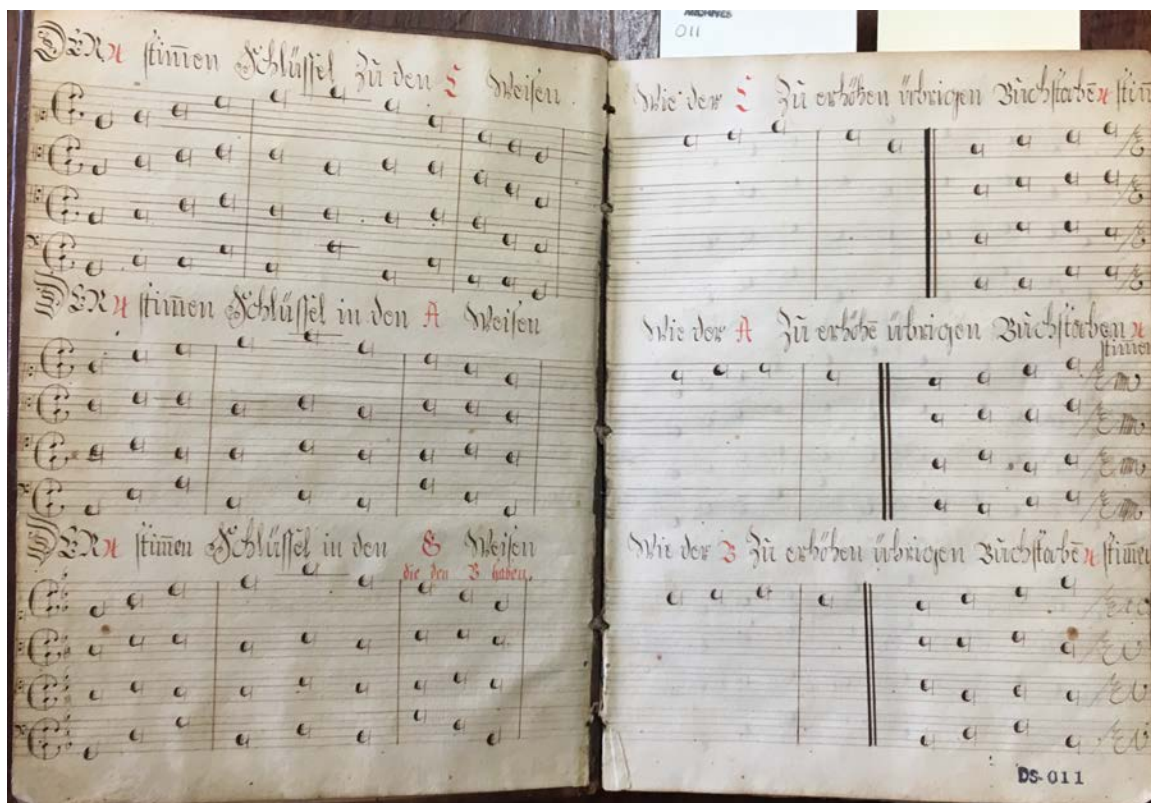 DER 4 stim̄en Schlüssel Zū den C Weisen.
DER 4 stim̄en Schlüssel in den A Weisen
DER 4 stim̄en Schlüssel in den G Weisen
die den B haben.
011
Wie der C Zū erhöhen übrigen Buchstabē 4 stim̄
Wie der A Zū erhöhē übrigen Buchstaben 4
stimen
Wie der B Zū erhöhen übrigen Buchstabē 4 stim̄en
DS-011